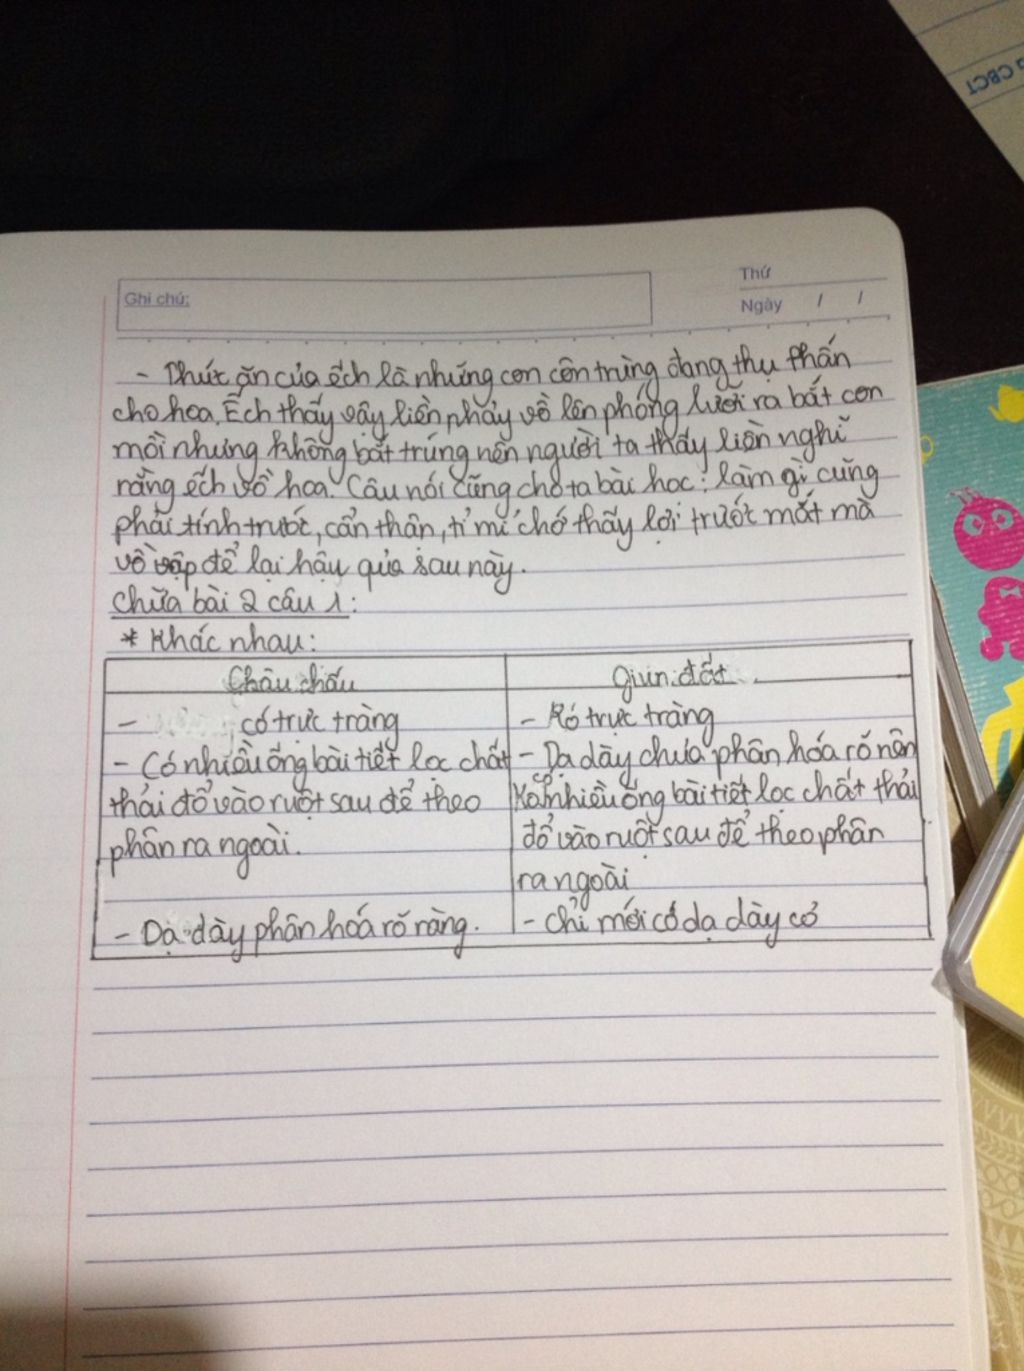 CBCT
Thứ
Ghi chú:
Ngày / /
- Thức ăn của ếch là những con côn trùng đang thụ phấn
cho hoa. Ếch thấy vậy liền nhảy vồ lên phóng lưỡi ra bắt con
mồi nhưng không bắt trúng nên người ta thấy liền nghĩ
rằng ếch vồ hoa. Câu nói cũng cho ta bài học: làm gì cũng
phải tính trước, cẩn thận, tỉ mỉ chớ thấy lợi trước mắt mà
vồ vập để lại hậu quả sau này.
Chữa bài 2 câu 1:
* Khác nhau:
Châu chấu
Giun đất
- có trực tràng
- Kó trực tràng
- Có nhiều ống bài tiết lọc chất
thải đổ vào ruột sau để theo
phân ra ngoài.
- Dạ dày phân hóa rõ ràng.
- Dạ dày chưa phân hóa rõ nên
nhiều ống bài tiết lọc chất thải
đổ vào ruột sau để theo phân
ra ngoài
- chỉ mới có dạ dày cơ